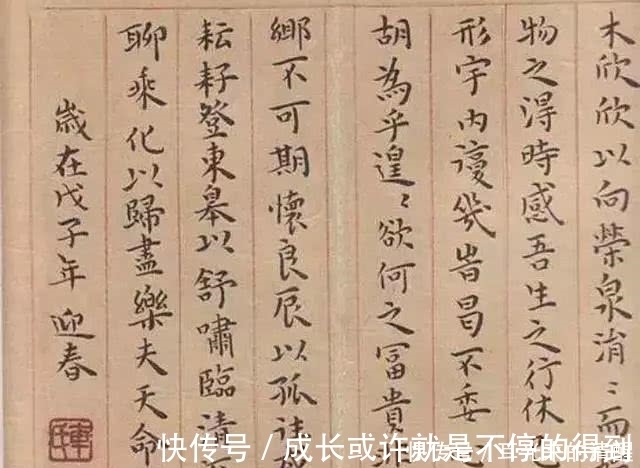 木欣欣以向榮泉涓〻而
物之得時感吾生之行休
形宇内復幾旹曷不委
胡為乎遑〻欲何之富貴非
鄉不可期懷良辰以孤往
耘耔登東皋以舒嘯臨清
聊乘化以歸盡樂夫天命
歲在戊子年迎春
快传号 / 成长或许就是不停的得到